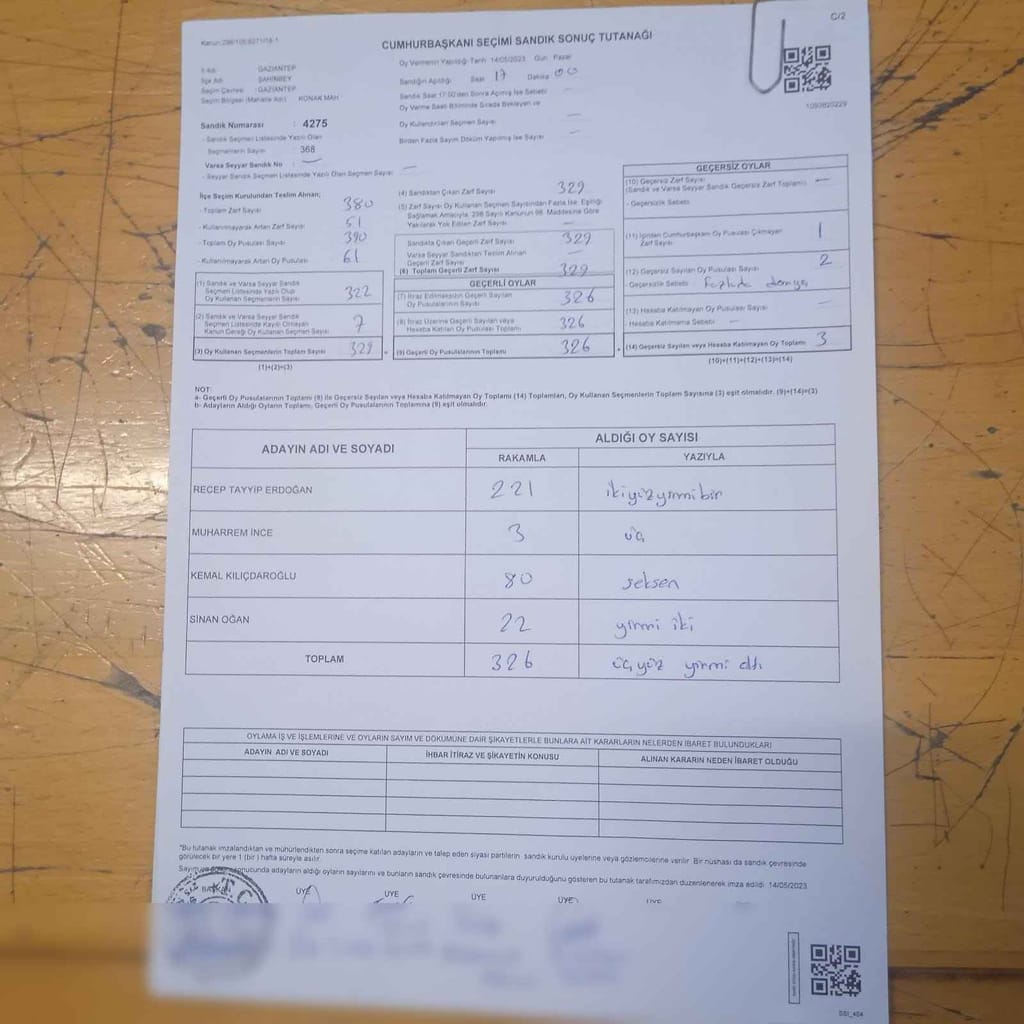 C/2
CUMHURBAŞKANI SEÇİMİ SANDIK SONUÇ TUTANAĞI
1093820229
İl Adı : GAZİANTEP
İlçe Adı : ŞAHİNBEY
Seçim Çevresi : GAZİANTEP
Seçim Bölgesi (Mahalle Adı) : KONAK MAH.
Oy Vermenin Yapıldığı Tarih 14/05/2023 Gün Pazar
Sandığın Açıldığı Saat 17 Dakika 00
Sandık Saat 17:00'den Sonra Açılmış İse Sebebi —
Oy Verme Saati Bitiminde Sırada Bekleyen ve
Oy Kullandırılan Seçmen Sayısı —
Birden Fazla Sayım Döküm Yapılmış İse Sayısı —
Sandık Numarası : 4275
- Sandık Seçmen Listesinde Yazılı Olan
Seçmenlerin Sayısı : 368
Varsa Seyyar Sandık No : —
- Seyyar Sandık Seçmen Listesinde Yazılı Olan Seçmen Sayısı —
İlçe Seçim Kurulundan Teslim Alınan;
- Toplam Zarf Sayısı 380
- Kullanılmayarak Artan Zarf Sayısı 51
- Toplam Oy Pusulası Sayısı 390
- Kullanılmayarak Artan Oy Pusulası 61
(1) Sandık ve Varsa Seyyar Sandık
Seçmen Listesinde Yazılı Olup
Oy Kullanan Seçmenlerin Sayısı 322
(2) Sandık ve Varsa Seyyar Sandık
Seçmen Listesinde Kayıtlı Olmayan
Kanun Gereği Oy Kullanan Seçmen Sayısı 7
(3) Oy Kullanan Seçmenlerin Toplam Sayısı 329
(1)+(2)=(3)
(4) Sandıktan Çıkan Zarf Sayısı 329
(5) Zarf Sayısı Oy Kullanan Seçmen Sayısından Fazla İse, Eşitliği
Sağlamak Amacıyla, 298 Sayılı Kanunun 98. Maddesine Göre
Yakılarak Yok Edilen Zarf Sayısı —
Sandıkta Çıkan Geçerli Zarf Sayısı 329
Varsa Seyyar Sandıktan Teslim Alınan
Geçerli Zarf Sayısı —
(6) Toplam Geçerli Zarf Sayısı 329
GEÇERLİ OYLAR
(7) İtiraz Edilmeksizin Geçerli Sayılan
Oy Pusulalarının Sayısı 326
(8) İtiraz Üzerine Geçerli Sayılan veya
Hesaba Katılan Oy Pusulası Toplamı 326
(9) Geçerli Oy Pusulalarının Toplamı 326
GEÇERSİZ OYLAR
(10) Geçersiz Zarf Sayısı —
(Sandık ve Varsa Seyyar Sandık Geçersiz Zarf Toplamı)
- Geçersizlik Sebebi
(11) İçinden Cumhurbaşkanı Oy Pusulası Çıkmayan
Zarf Sayısı 1
(12) Geçersiz Sayılan Oy Pusulası Sayısı 2
- Geçersizlik Sebebi Fazlada damga
(13) Hesaba Katılmayan Oy Pusulası Sayısı —
- Hesaba Katılmama Sebebi —
(14) Geçersiz Sayılan veya Hesaba Katılmayan Oy Toplamı 3
(10)+(11)+(12)+(13)=(14)
NOT:
a- Geçerli Oy Pusulalarının Toplamı (9) ile Geçersiz Sayılan veya Hesaba Katılmayan Oy Toplamı (14) Toplamları, Oy Kullanan Seçmenlerin Toplam Sayısına (3) eşit olmalıdır. (9)+(14)=(3)
b- Adayların Aldığı Oyların Toplamı, Geçerli Oy Pusulalarının Toplamına (9) eşit olmalıdır.
ADAYIN ADI VE SOYADI ALDIĞI OY SAYISI
RAKAMLA YAZIYLA
RECEP TAYYİP ERDOĞAN 221 ikiyüzyirmibir
MUHARREM İNCE 3 üç
KEMAL KILIÇDAROĞLU 80 seksen
SİNAN OĞAN 22 yirmi iki
TOPLAM 326 üçyüz yirmi altı
OYLAMA İŞ VE İŞLEMLERİNE VE OYLARIN SAYIM VE DÖKÜMÜNE DAİR ŞİKAYETLERLE BUNLARA AİT KARARLARIN NELERDEN İBARET BULUNDUKLARI
ADAYIN ADI VE SOYADI İHBAR İTİRAZ VE ŞİKAYETİN KONUSU ALINAN KARARIN NEDEN İBARET OLDUĞU
"Bu tutanak imzalandıktan ve mühürlendikten sonra seçime katılan adayların ve talep eden siyasi partilerin sandık kurulu üyelerine veya gözlemcilerine verilir. Bir nüshası da sandık çevresinde
görülecek bir yere 1 (bir) hafta süreyle asılır.
sonucunda adayların aldığı oyların sayılarını ve bunların sandık çevresinde bulunanlara duyurulduğunu gösteren bu tutanak tarafımızdan düzenlenerek imza edildi. 14/05/2023
BAŞKAN ÜYE ÜYE ÜYE ÜYE ÜYE